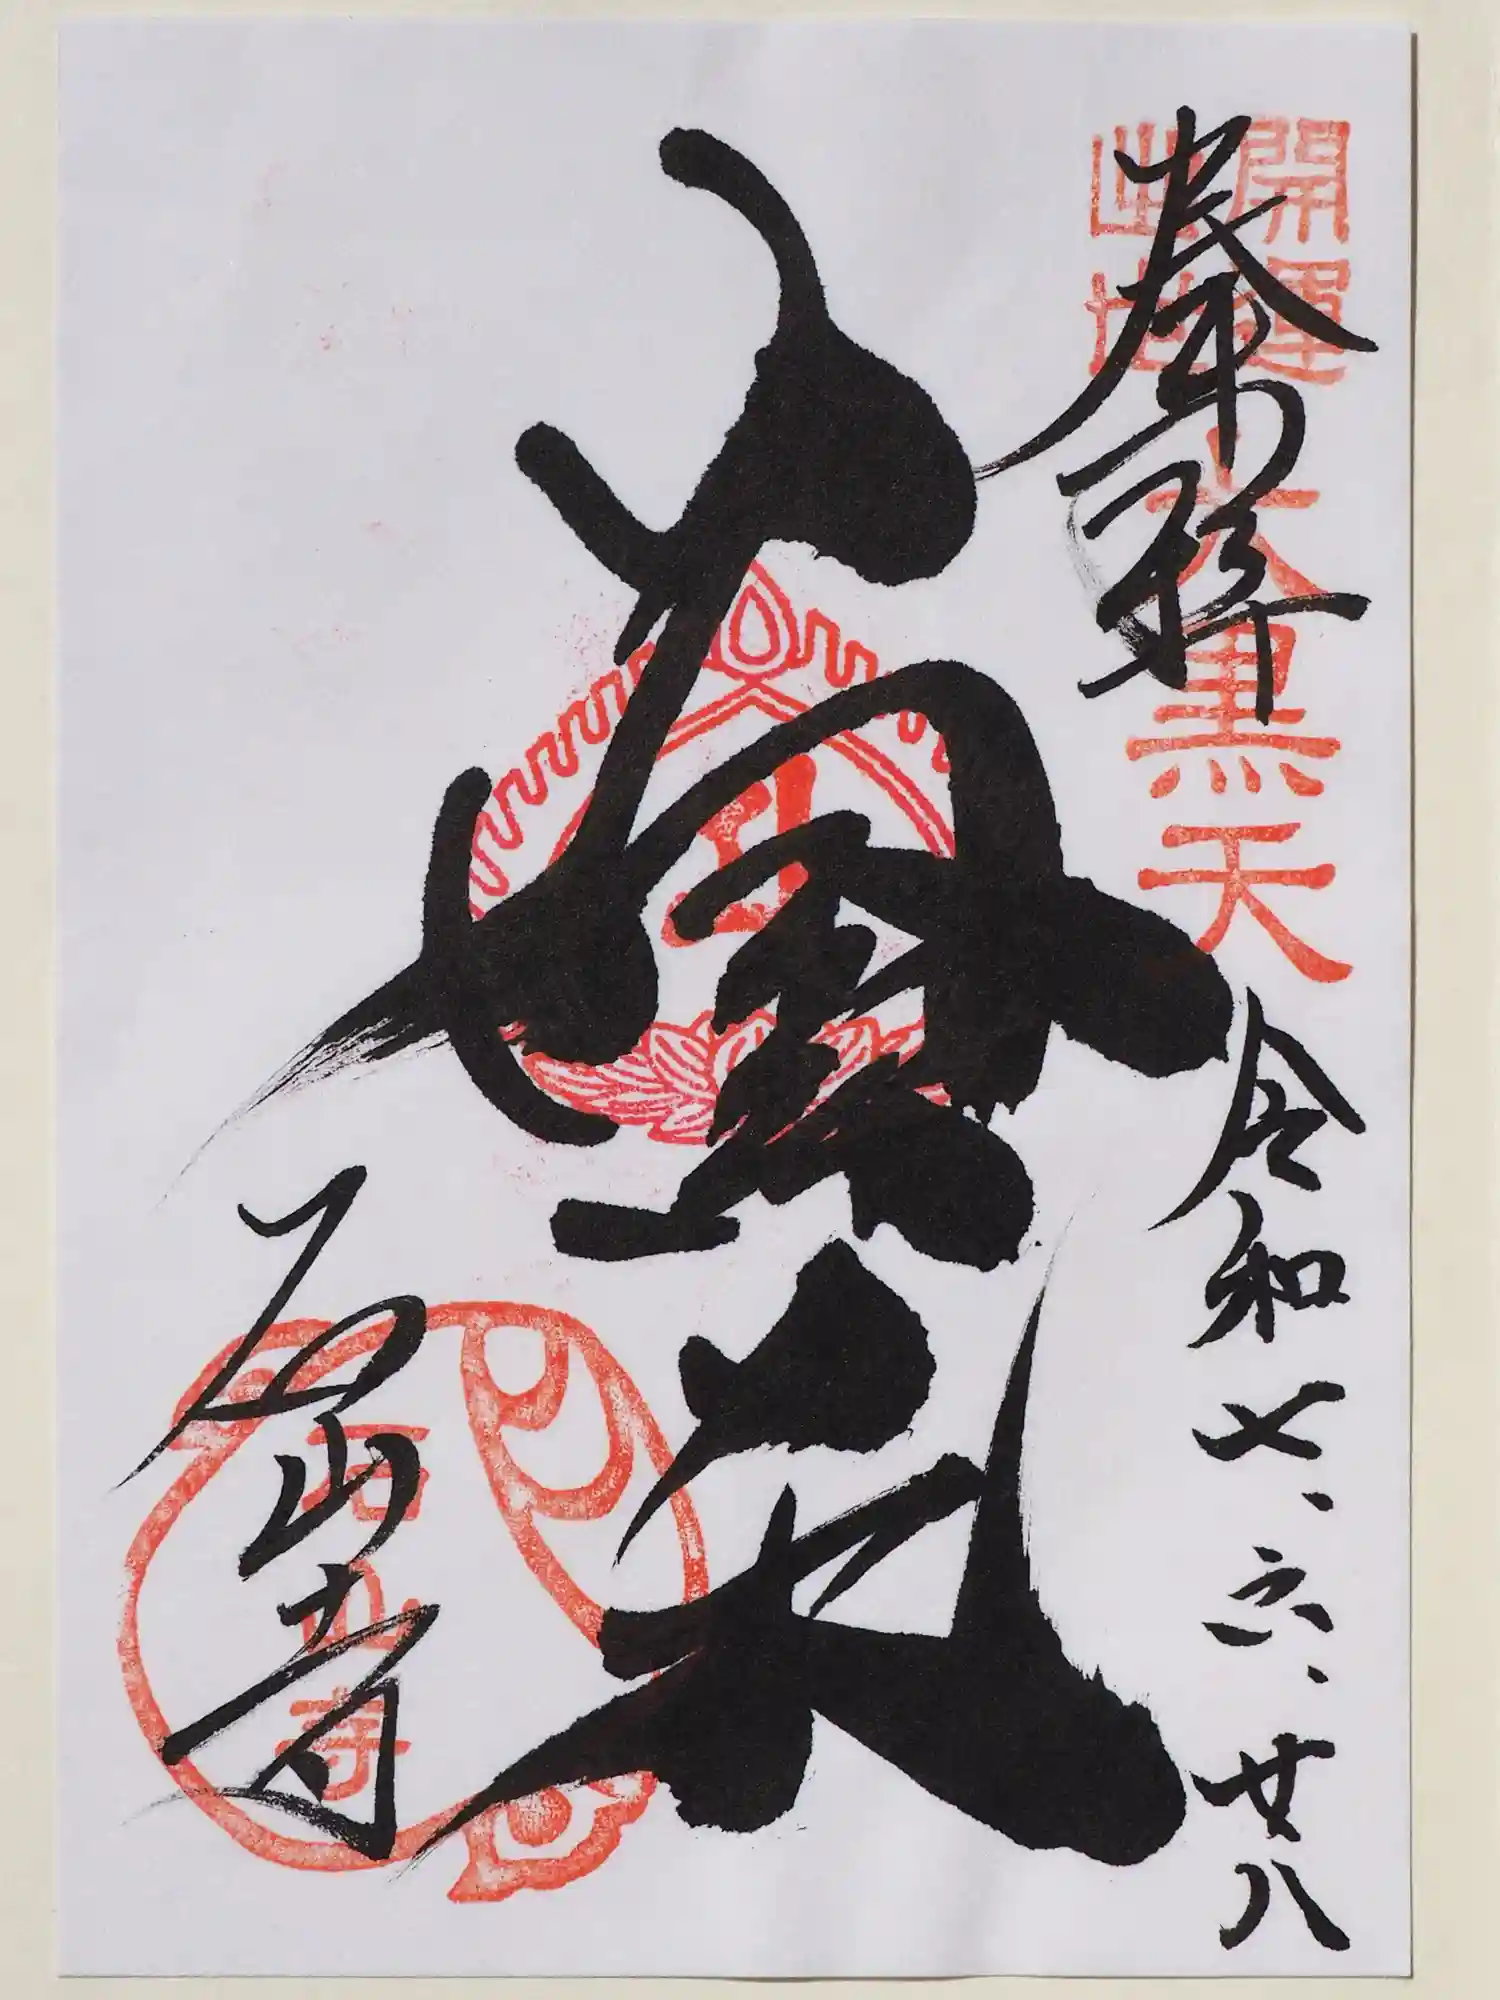 開運
出世
大黒天
奉拝
令和七、六、廿八
石山寺
石山寺